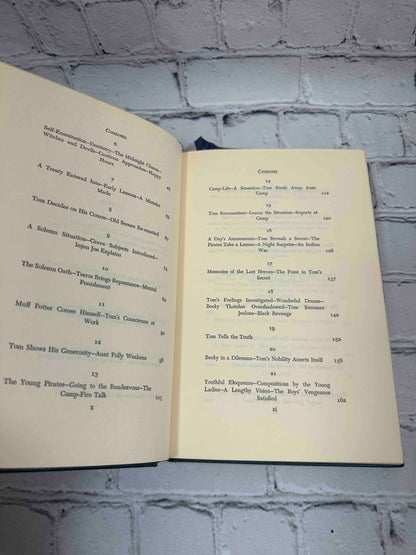 Contents
6
Self-Examination—Dentistry—The Midnight Charm—
Witches and Devils—Cautious Approaches—Happy
Hours
7
A Treaty Entered Into—Early Lessons—A Mistake
Made 65
8
Tom Decides on His Course—Old Scenes Re-enacted 74
9
A Solemn Situation—Grave Subjects Introduced—
Injun Joe Explains
10
The Solemn Oath—Terror Brings Repentance—Mental
Punishment
11
Muff Potter Comes Himself—Tom's Conscience at
Work
12
Tom Shows His Generosity—Aunt Polly Weakens 98
13
The Young Pirates—Going to the Rendezvous—The
Camp-Fire Talk 105
x
Contents
14
Camp-Life—A Sensation—Tom Steals Away from
Camp
15
Tom Reconnoiters—Learns the Situation—Reports at
Camp
16
A Day's Amusements—Tom Reveals a Secret—The
Pirates Take a Lesson—A Night Surprise—An Indian
War
17
Memories of the Lost Heroes—The Point in Tom's
Secret 137
18
Tom's Feelings Investigated—Wonderful Dream—
Becky Thatcher Overshadowed—Tom Becomes
Jealous—Black Revenge 142
19
Tom Tells the Truth
20
Becky in a Dilemma—Tom's Nobility Asserts Itself 156
21
Youthful Eloquence—Compositions by the Young
Ladies—A Lengthy Vision—The Boys' Vengeance
Satisfied 162
xi